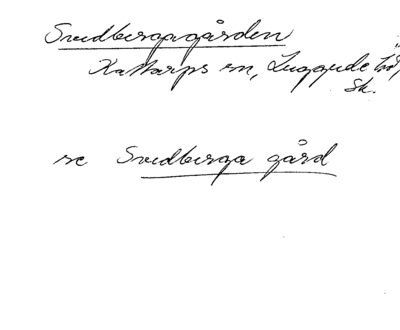 Svedbergagården
Kattarps sn, Luggude hd,
Sk.
se Svedberga gård